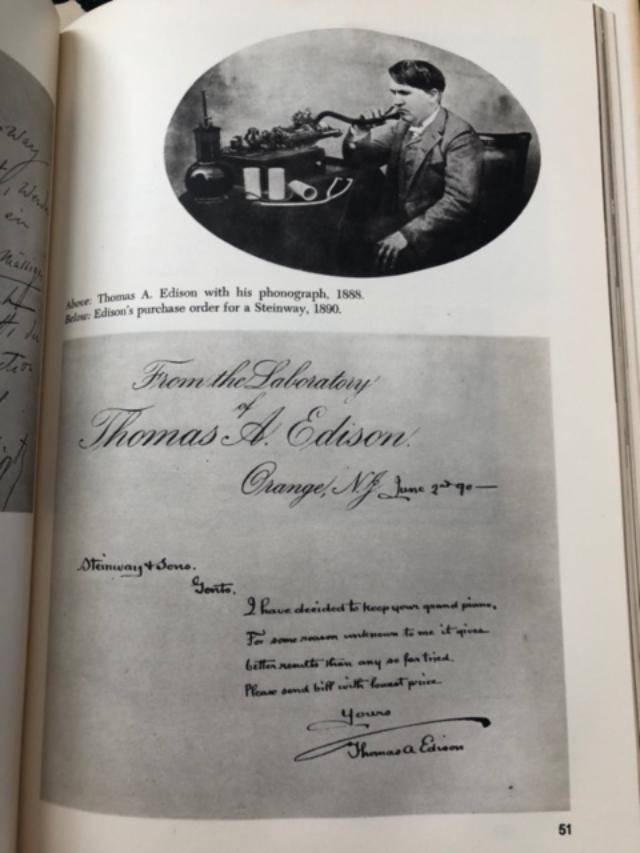 Way
in
Above: Thomas A. Edison with his phonograph, 1888.
Below: Edison's purchase order for a Steinway, 1890.
From the Laboratory
of
Thomas A. Edison.
Orange, N.J. June 2nd 90 —
Steinway & Sons.
Gents.
I have decided to keep your grand piano.
For some reason unknown to me it gives
better results than any so far tried.
Please send bill with lowest price.
Yours
Thomas A Edison
51